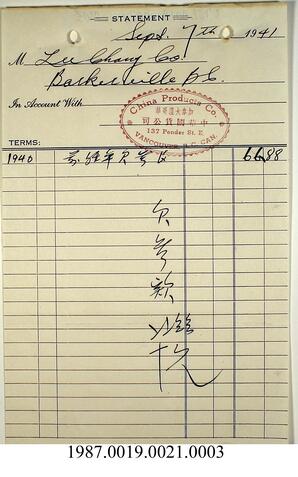 STATEMENT
Sept. 7th 1941
M Lee Chong Co.
Barkerville B.C.
In Account With
China Products Co.
加拿大雲高華
中華國貨公司
137 Pender St. E.
VANCOUVER, B.C. CAN.
TERMS:
1940 年欠 6688
欠
款
1987.0019.0021.0003